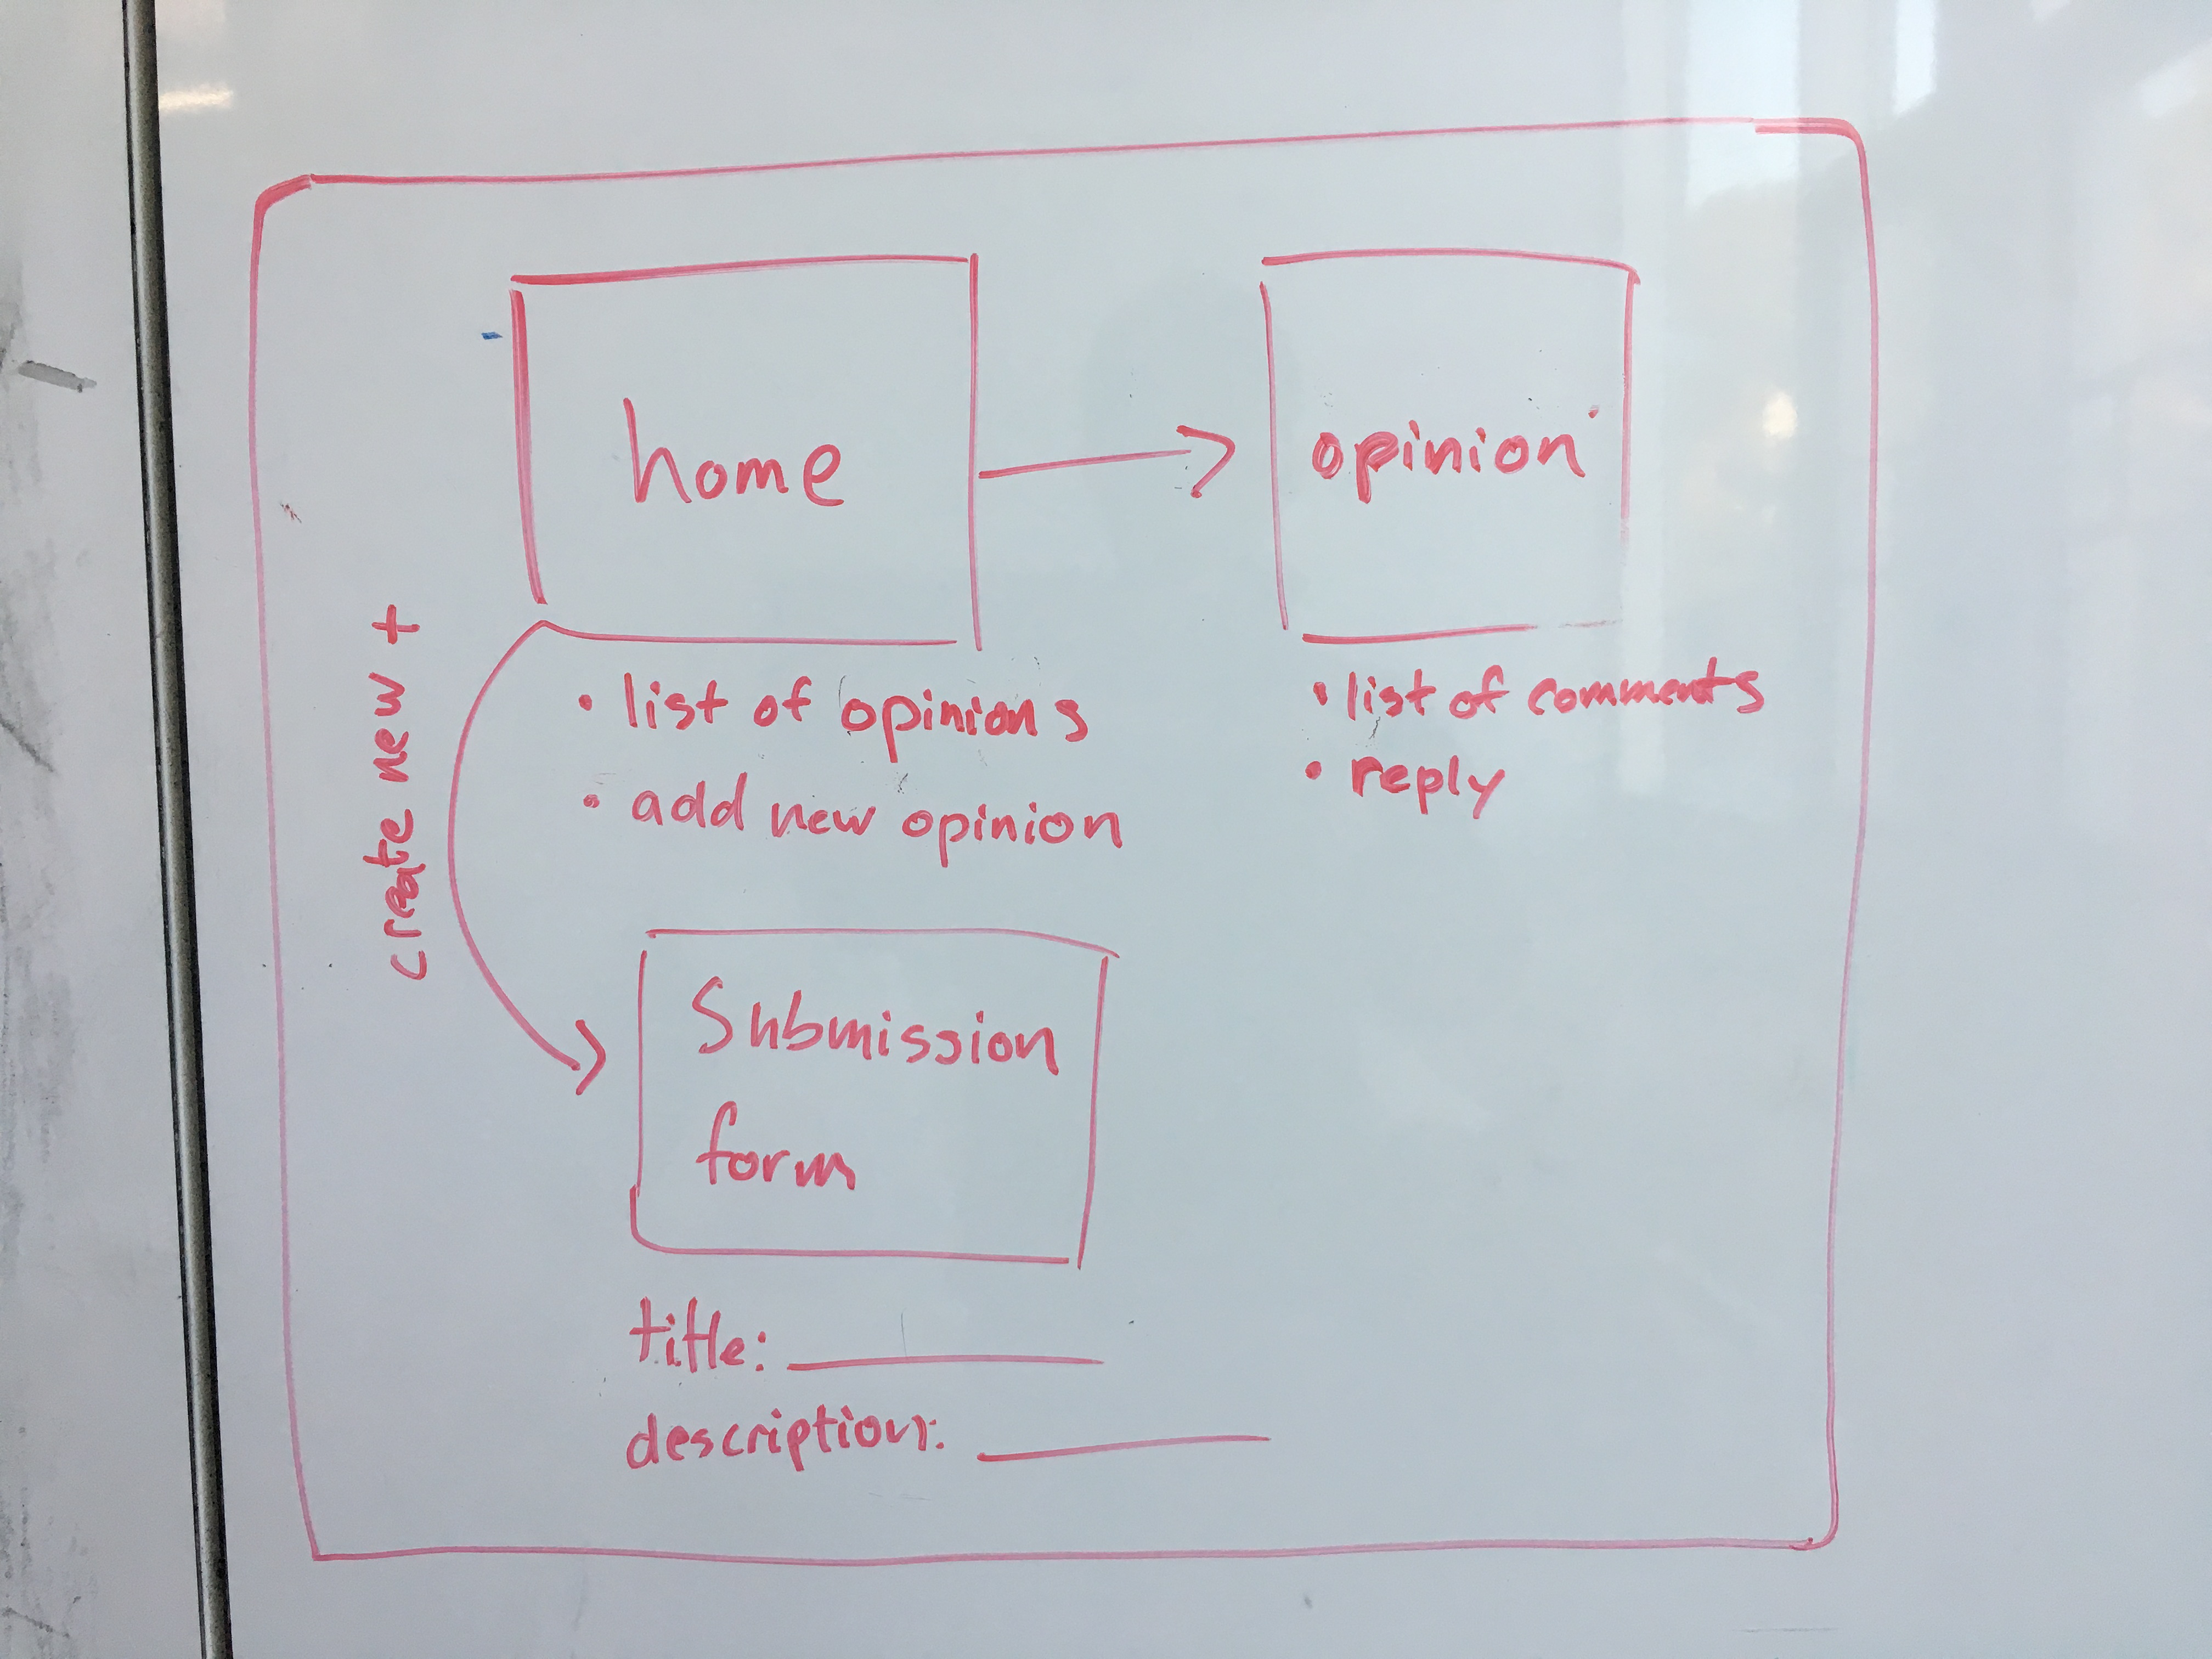 home
opinion
create new +
• list of opinions
• add new opinion
• list of comments
• reply
Submission
form
title:
description: